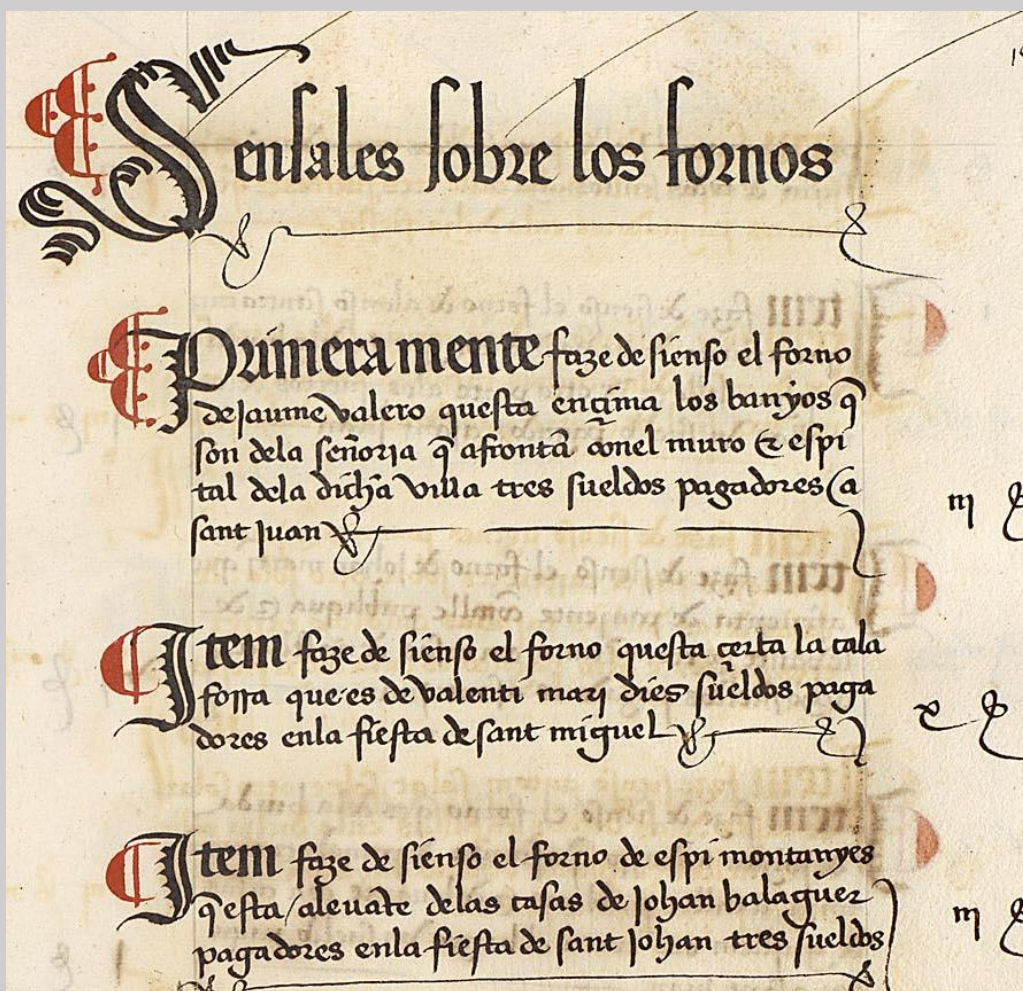 Sensales sobre los fornos
Primeramente faze de sienso el forno
de Jaume valero questa ençima los banyos q̄
son dela señoria q̄ afrontā conel muro & espi
tal dela dicha villa tres sueldos pagadores a
sant Juan
Item faze de sienso el forno questa çerta la cala
forra que es de valenti mari dies sueldos paga
dores enla fiesta de sant miguel
Item faze de sienso el forno de espi montanyes
q̄ esta alevāte delas casas de Johan balaguer
pagadores enla fiesta de sant Johan tres sueldos
iij
x
iij